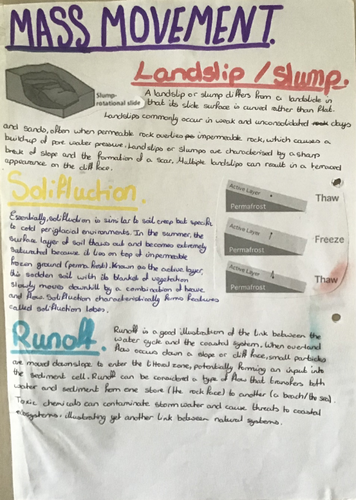 MASS MOVEMENT.
Landslip / Slump.
Slump-
rotational slide
A landslip or slump differs from a landslide in
that its slide surface is curved rather than flat.
Landslips commonly occur in weak and unconsolidated clays
and sands, often when permeable rock overlies impermeable rock, which causes a
build-up of pore water pressure. Landslips or slumps are characterised by a sharp
break of slope and the formation of a scar. Multiple landslips can result in a terraced
appearance on the cliff face.
Solifluction
Essentially, solifluction is similar to soil creep but specific
to cold periglacial environments. In the summer, the
surface layer of soil thaws out and becomes extremely
saturated because it lies on top of impermeable
frozen ground (permafrost). Known as the active layer,
this sodden soil with its blanket of vegetation
slowly moves downhill by a combination of heave
and flow. Solifluction characteristically forms features
called solifluction lobes.
Active Layer
Permafrost
Thaw
Active Layer
Permafrost
Freeze
Active Layer
Permafrost
Thaw
Runoff
Runoff is a good illustration of the link between the
water cycle and the coastal system. When overland
flow occurs down a slope or cliff face, small particles
are moved downslope to enter the littoral zone, potentially forming an input into
the sediment cell. Runoff can be considered a type of flow that transfers both
water and sediment from one store (the rock face) to another (a beach/the sea).
Toxic chemicals can contaminate stormwater and cause threats to coastal
ecosystems, illustrating yet another link between natural systems.